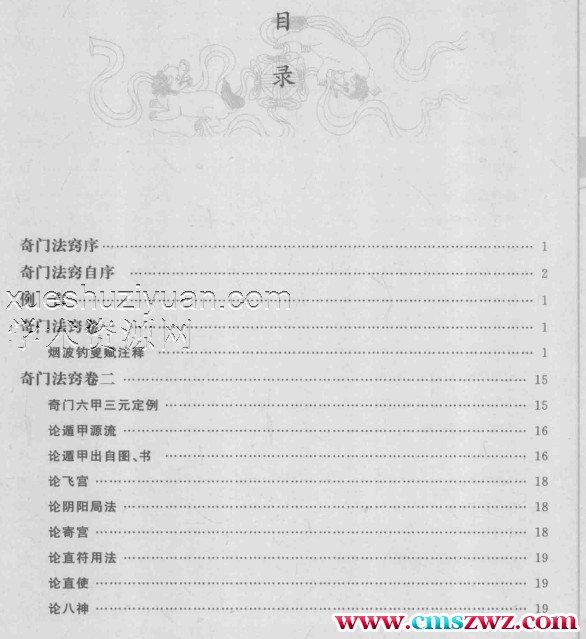 目
录
奇门法窍序 1
奇门法窍自序 2
例 言 1
奇门法窍卷一 1
烟波钓叟赋注释 1
奇门法窍卷二 15
奇门六甲三元定例 15
论遁甲源流 16
论遁甲出自图、书 16
论飞宫 18
论阴阳局法 18
论寄宫 18
论直符用法 19
论直使 19
论八神 19
xueshuziyuan.com
学术资源网
www.cmszwz.com